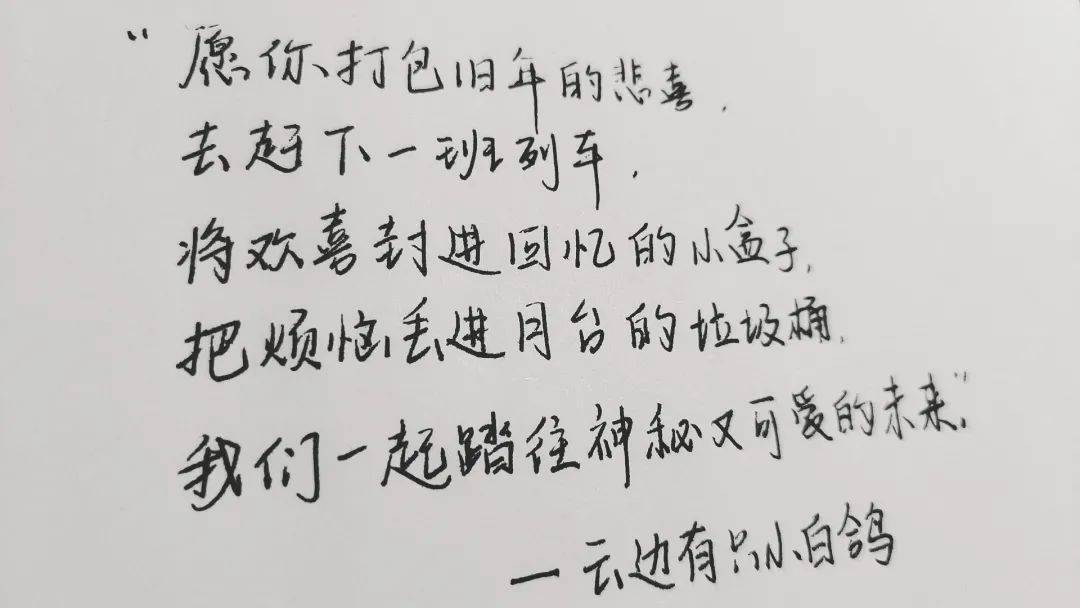 “愿你打包旧年的悲喜，
去赶下一班列车，
将欢喜封进回忆的小盒子，
把烦恼丢进月台的垃圾桶，
我们一起踏往神秘又可爱的未来。”
一云边有只小白鸽